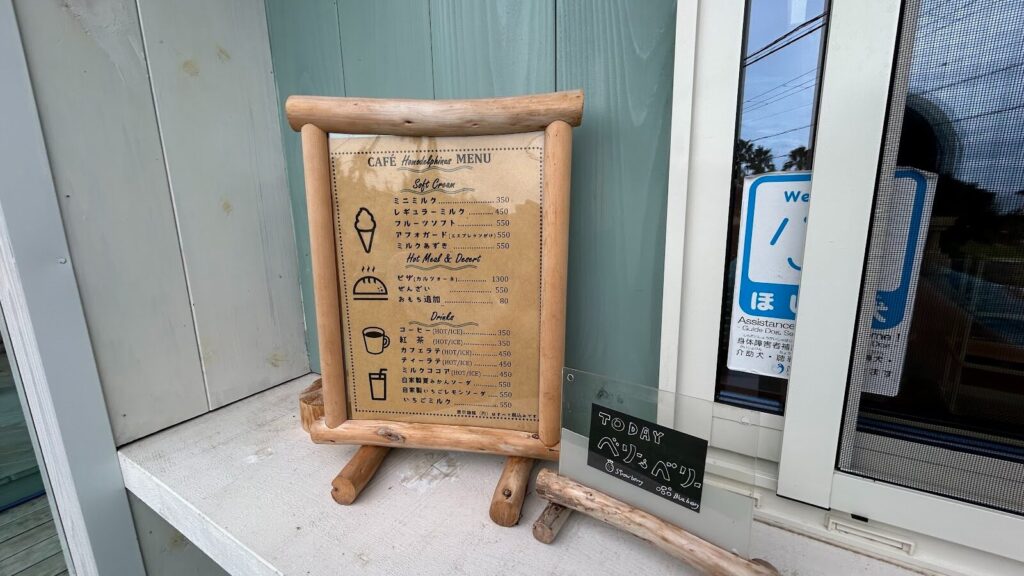 CAFÉ Homodelphinus MENU
Soft Cream
ミニミルク 350
レギュラーミルク 450
フルーツソフト 550
アフォガード(エスプレッソがけ) 550
ミルクあずき 550
Hot Meal & Desert
ピザ(カルツォーネ) 1300
ぜんざい 550
おもち追加 80
Drinks
コーヒー(HOT/ICE) 350
紅茶 (HOT/ICE) 350
カフェラテ(HOT/ICE) 450
ティーラテ(HOT/ICE) 450
ミルクココア(HOT/ICE) 450
自家製夏みかんソーダ 550
自家製いちごレモンソーダ 550
いちごミルク 550
表示価格(円)はすべて税込みです
TODAY
ベリー&ベリー
Strawberry
Blueberry
We
ほ
Assistance
Guide Dogs, Se
身体障害者補
介助犬・聴